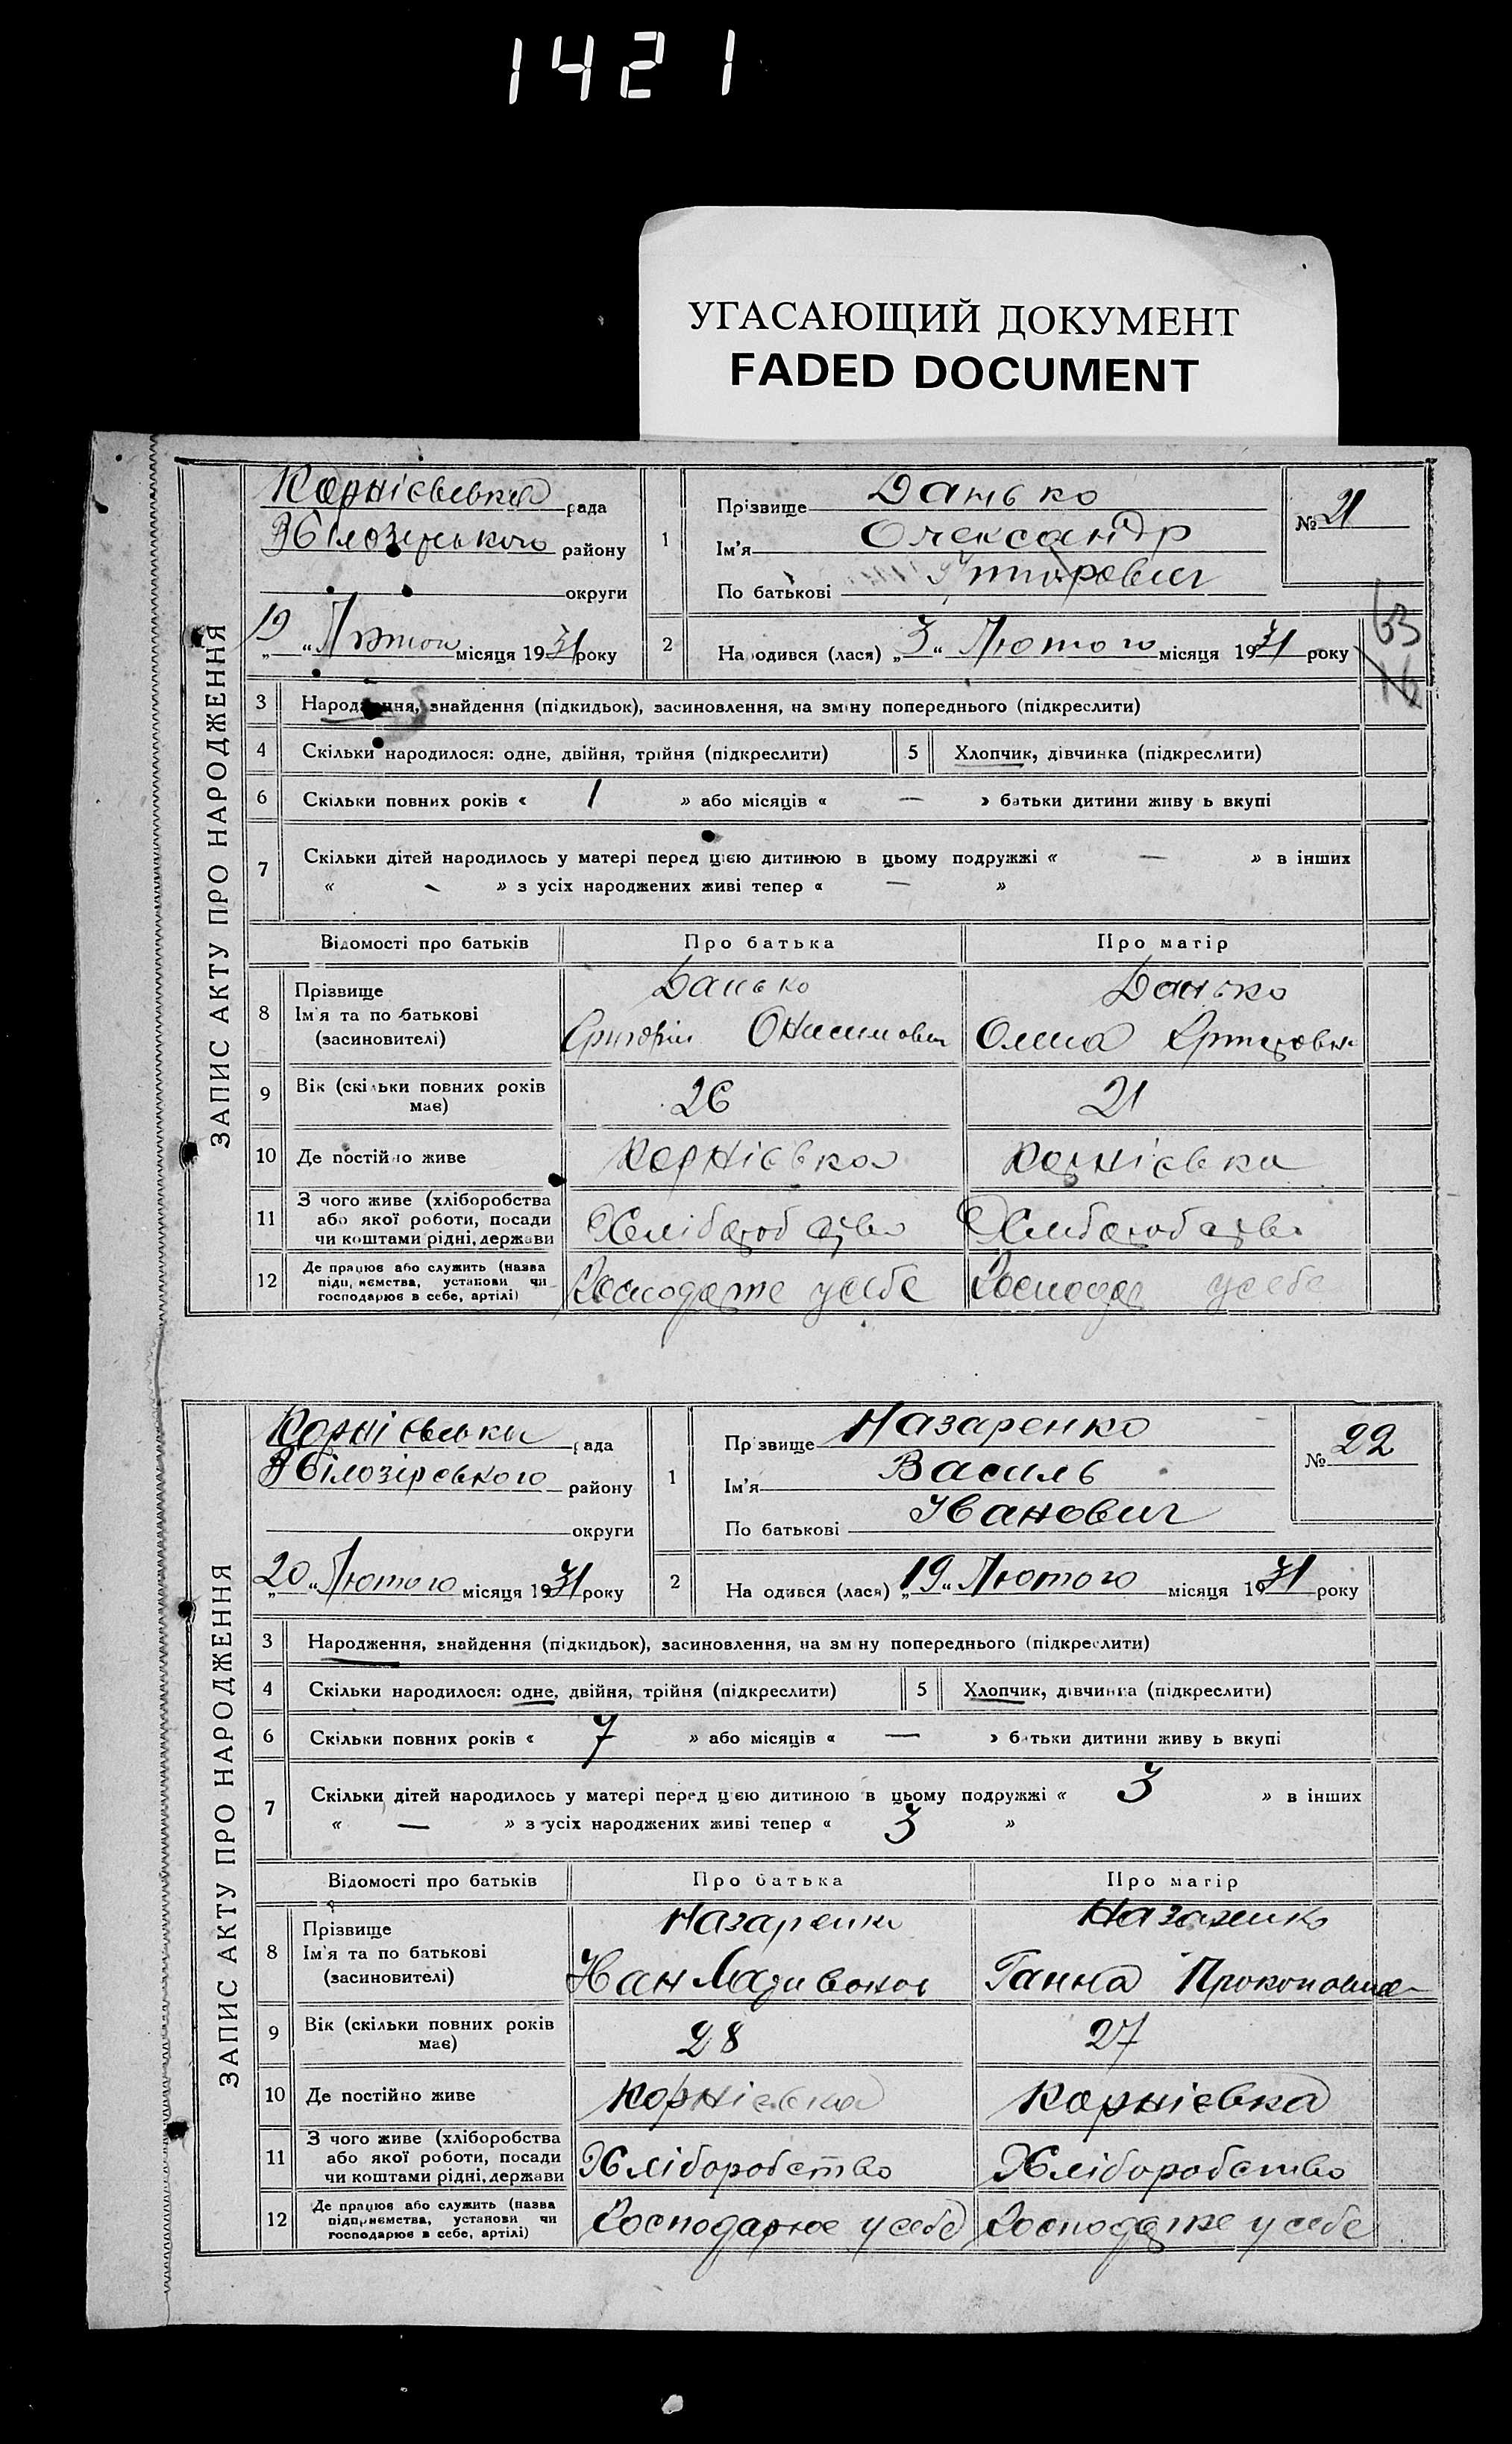 1421
УГАСАЮЩИЙ ДОКУМЕНТ
FADED DOCUMENT
ЗАПИС АКТУ ПРО НАРОДЖЕННЯ
Корнієвська рада
Збілозерського району
округи
„19“ Лютого місяця 1931 року
1
Прізвище Данько
Ім'я Олександр
По батькові
№ 21
2
Народився (лася) „3“ Лютого місяця 1931 року
63
16
3 Народження, знайдення (підкидьок), засиновлення, на зміну попереднього (підкреслити)
4 Скільки народилося: одне, двійня, трійня (підкреслити)
5 Хлопчик, дівчинка (підкреслити)
6 Скільки повних років « 1 » або місяців « — » батьки дитини живуть вкупі
7 Скільки дітей народилось у матері перед цією дитиною в цьому подружжі « — » в інших
« - » з усіх народжених живі тепер « — »
Відомості про батьків Про батька Про матір
8 Прізвище Данько Данько
Ім'я та по батькові Григорій Онисимович Олена
(засиновителі)
9 Вік (скільки повних років має) 26 21
10 Де постійно живе Корнієвка Корнієвка
11 З чого живе (хліборобства
або якої роботи, посади
чи коштами рідні, держави
Хліборобство Хліборобство
12 Де працює або служить (назва
підприємства, установи чи
господарює в себе, артілі)
Господарює у себе Господар у себе
ЗАПИС АКТУ ПРО НАРОДЖЕННЯ
Корнієвська рада
Збілозірського району
округи
„20“ Лютого місяця 1931 року
1
Прізвище Назаренко
Ім'я Василь
По батькові Іванович
№ 22
2
Народився (лася) „19“ Лютого місяця 1931 року
3 Народження, знайдення (підкидьок), засиновлення, на зміну попереднього (підкреслити)
4 Скільки народилося: одне, двійня, трійня (підкреслити)
5 Хлопчик, дівчинка (підкреслити)
6 Скільки повних років « 7 » або місяців « — » батьки дитини живуть вкупі
7 Скільки дітей народилось у матері перед цією дитиною в цьому подружжі « 3 » в інших
« — » з усіх народжених живі тепер « 3 »
Відомості про батьків Про батька Про матір
8 Прізвище Назаренко Назаренко
Ім'я та по батькові Іван Ганна Прокоповна
(засиновителі)
9 Вік (скільки повних років має) 28 27
10 Де постійно живе Корнієвка Корнієвка
11 З чого живе (хліборобства
або якої роботи, посади
чи коштами рідні, держави
Хліборобство Хліборобство
12 Де працює або служить (назва
підприємства, установи чи
господарює в себе, артілі)
Господарює у себе Господарює у себе